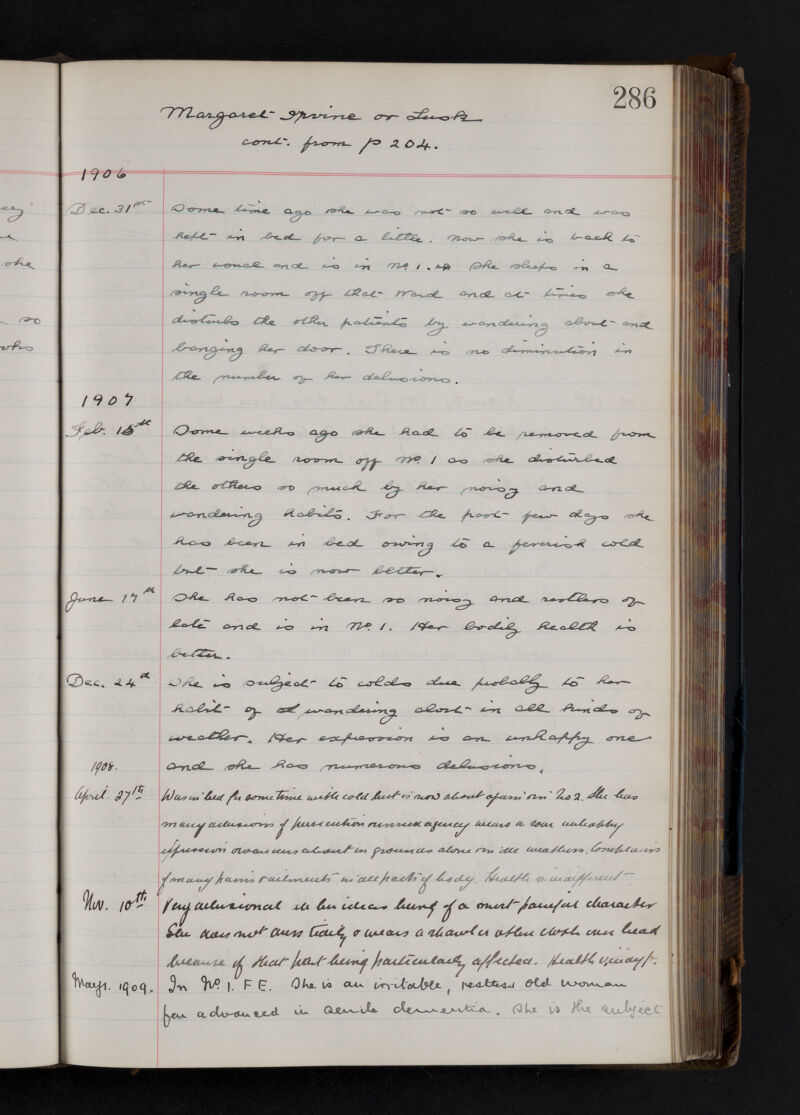 286
Margaret Irvine or Lusk
cont. from p 204.
1906
Dec. 31st Some time ago she was not so well and was
kept in bed for a little. Now she is back to
her usual and is in No 1. She sleeps in a
single room off that Ward and at times she
disturbs the other patients by wandering about and
banging her door. There is no diminution in
the number of her delusions.
1907
Feb. 15th Some weeks ago she had to be removed from
the single room off No. 1 as she disturbed
the others so much by her noisy and
wandering habits. For the past few days she
has been in bed owing to a feverish cold
but she is now better.
June 17th She has not been so noisy and restless of
late and is in No. 1. Her bodily health is
better.
Dec. 24th She is subject to colds due probably to her
habit of wandering about in all kinds of
weather. Her expression is an unhappy one
1908. and she has numerous delusions.
April 27th Was in bed for some time with cold but is now about again in No 2. She has
many delusions of persecution unseen agency wears a dour unhappy
expression & wanders about in grounds alone in all weathers. Complains
of many pains & ailments in all parts of body. Health is indifferent
Nov. 10th Very delusional her ideas being of a most painful character
She does not dress tidily & wears a shawl or other cloth over head
because of that part being particularly affected. Health
May 1. 1909. In No. 1. F E. She is an irritable, restless old woman
far advanced in senile dementia. She is the subject
she
so
who